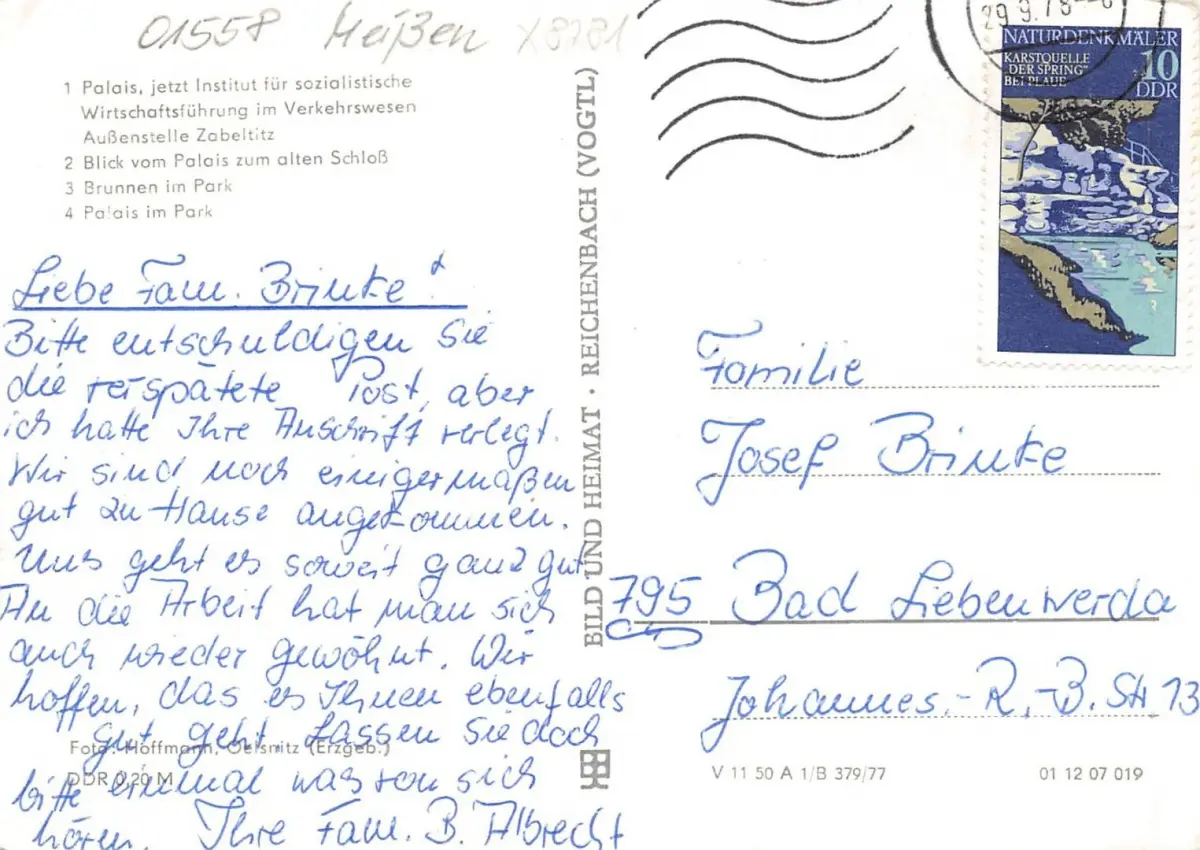 01558 Meißen X8781
1 Palais, jetzt Institut für sozialistische
Wirtschaftsführung im Verkehrswesen
Außenstelle Zabeltitz
2 Blick vom Palais zum alten Schloß
3 Brunnen im Park
4 Palais im Park
Liebe Fam. Brinke!
Bitte entschuldigen Sie
die verspätete Post, aber
ich hatte Ihre Anschrift verlegt.
Wir sind noch einigermaßen
gut zu Hause angekommen.
Uns geht es soweit ganz gut.
An die Arbeit hat man sich
auch wieder gewöhnt. Wir
hoffen, das es Ihnen ebenfalls
gut geht. Lassen Sie doch
bitte einmal was von sich
hören. Ihre Fam. B. Albrecht
Foto: Hoffmann, Oelsnitz (Erzgeb.)
DDR 0,20 M
BILD UND HEIMAT · REICHENBACH (VOGTL)
29.9.78
NATURDENKMÄLER
KARSTQUELLE
"DER SPRING"
BEI PLAUE
10
DDR
Familie
Josef Brinke
795 Bad Liebenwerda
Johannes.-R.-B. Str. 13
V 11 50 A 1/B 379/77
01 12 07 019